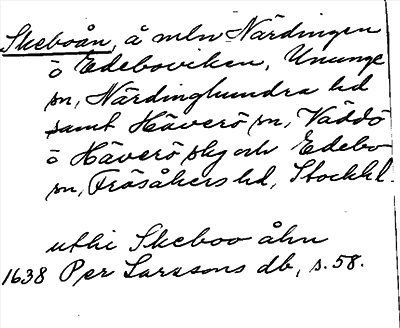 Skeboån, å mln Närdingen
o Edeboviken, Ununge
sn, Närdinghundra hd
samt Häverö sn, Väddö
o Häverö skg och Edebo
sn, Frösåkers hd, Stockhl.
uthi Skeboo åhn
1638 Per Larssons db, s. 58.